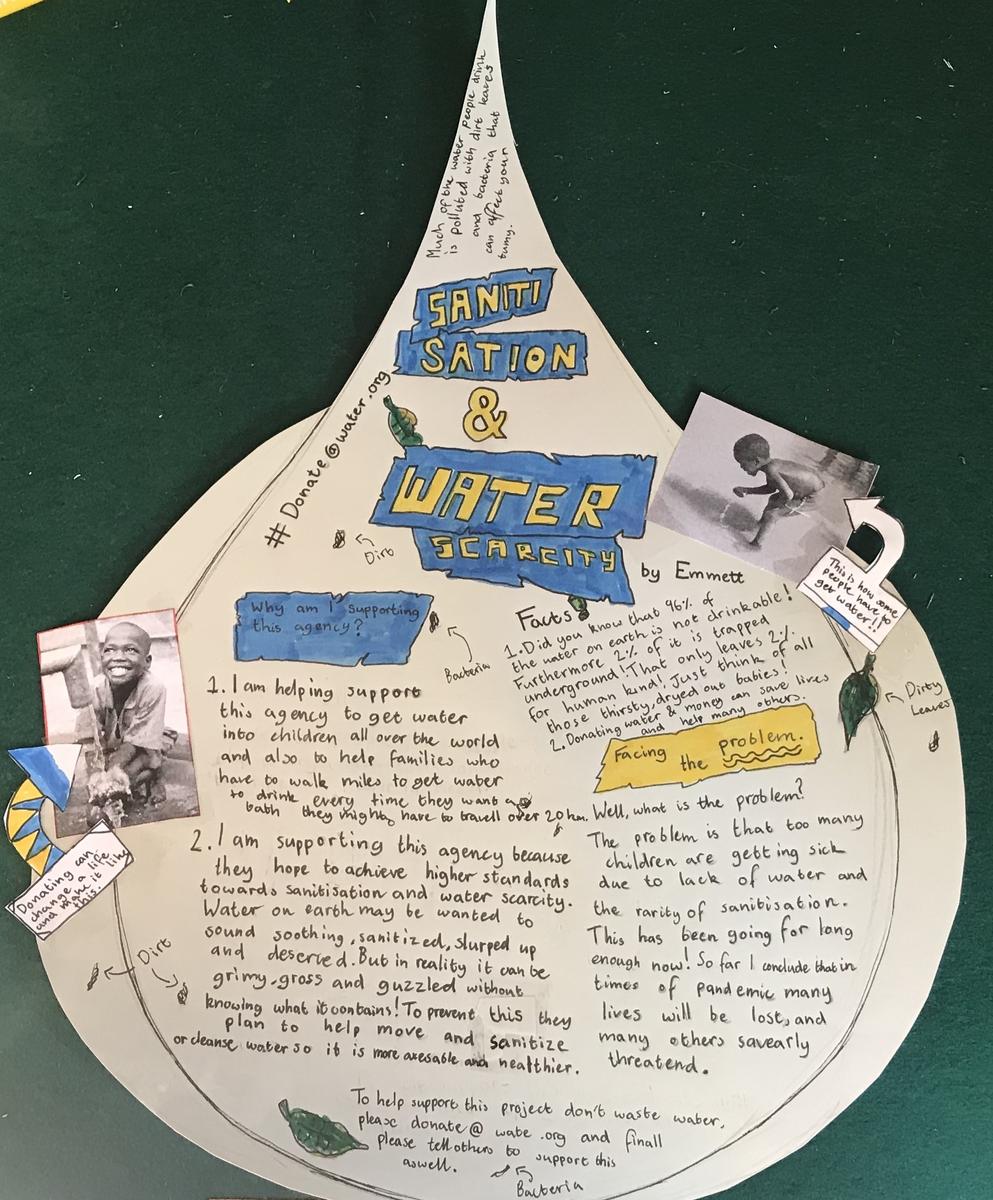 Much of the water people drink
is polluted with dirt leaves
and bacteria that
can affect your
tumy.
SANITI
SATION
&
WATER
SCARCITY
by Emmett
# Donate @water.org
Dirt
Why am I supporting
this agency?
Bacteria
1. I am helping support
this agency to get water
into children all over the world
and also to help families who
have to walk miles to get water
to drink every time they want a
bath they might have to travell over 20 km.
2. I am supporting this agency because
they hope to achieve higher standards
towards sanitisation and water scarcity.
Water on earth may be wanted to
sound soothing, sanitized, slurped up
and deserved. But in reality it can be
grimy, gross and guzzled without
knowing what it contains! To prevent this they
plan to help move and sanitize
or cleanse water so it is more axesable and healthier.
Facts
1. Did you know that 96% of
the water on earth is not drinkable!
Furthermore 2% of it is trapped
underground! That only leaves 2%
for human kind! Just think of all
those thirsty, dryed out babies!
2. Donating water & money can save lives
and help many others.
Facing
the problem.
Well, what is the problem?
The problem is that too many
children are getting sick
due to lack of water and
the rarity of sanitisation.
This has been going for long
enough now! So far I conclude that in
times of pandemic many
lives will be lost, and
many others savearly
threatend.
This is how some
people have to
get water!!
Dirty
Leaves
Donating can
change a life
and make it like
this.
Dirt
To help support this project don't waste water,
please donate @ wate .org and finall
please tell others to support this
aswell.
Bacteria